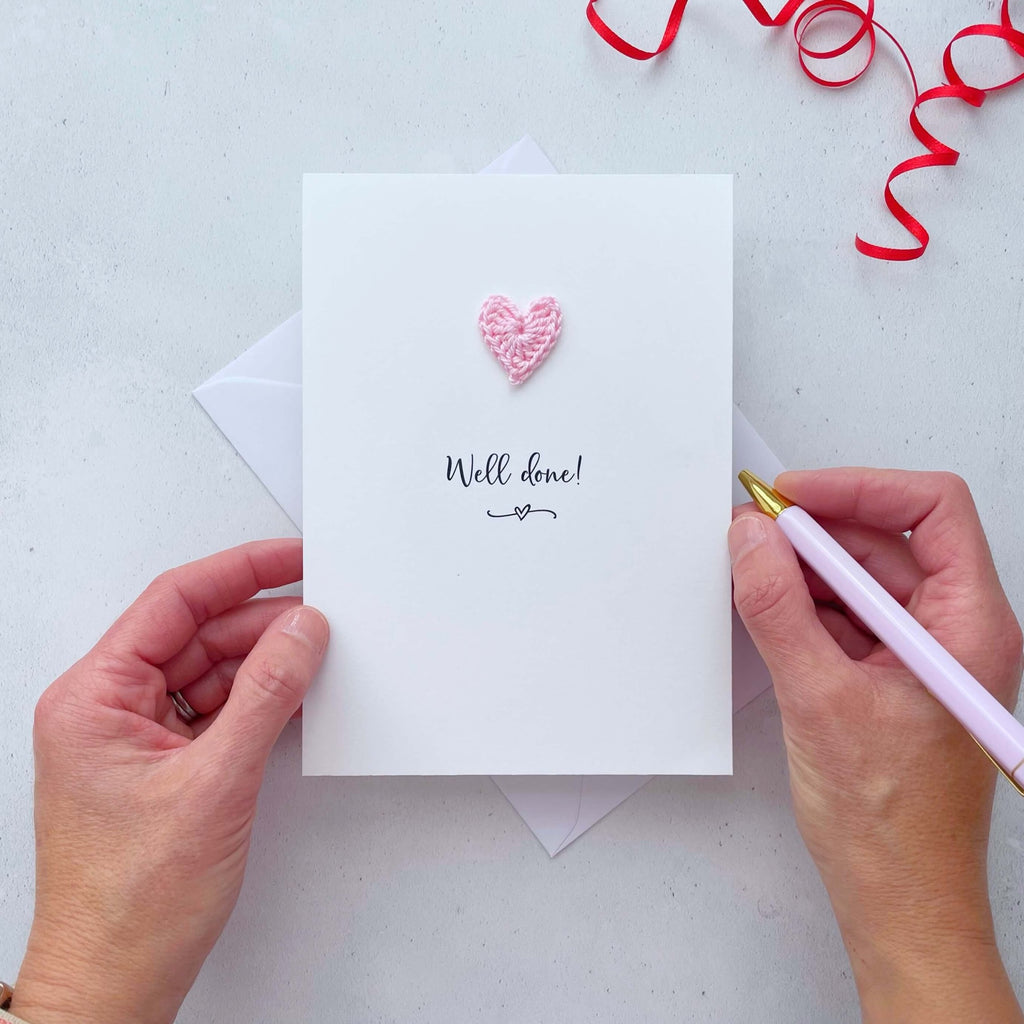 Well done!